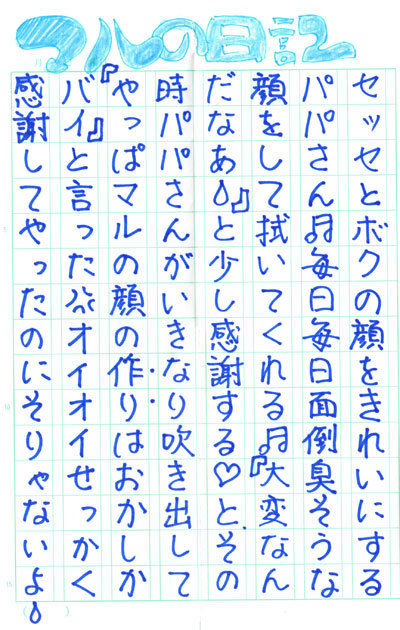 マルの日記
セッセとボクの顔をきれいにする
パパさん♫毎日毎日面倒臭そうな
顔をして拭いてくれる♫『大変なん
だなあ💧』と少し感謝する♡と、その
時パパさんがいきなり吹き出して
『やっぱマルの顔の作りはおかしか
バイ』と言った💦オイオイせっかく
感謝してやったのにそりゃないよ💧
5
10
15